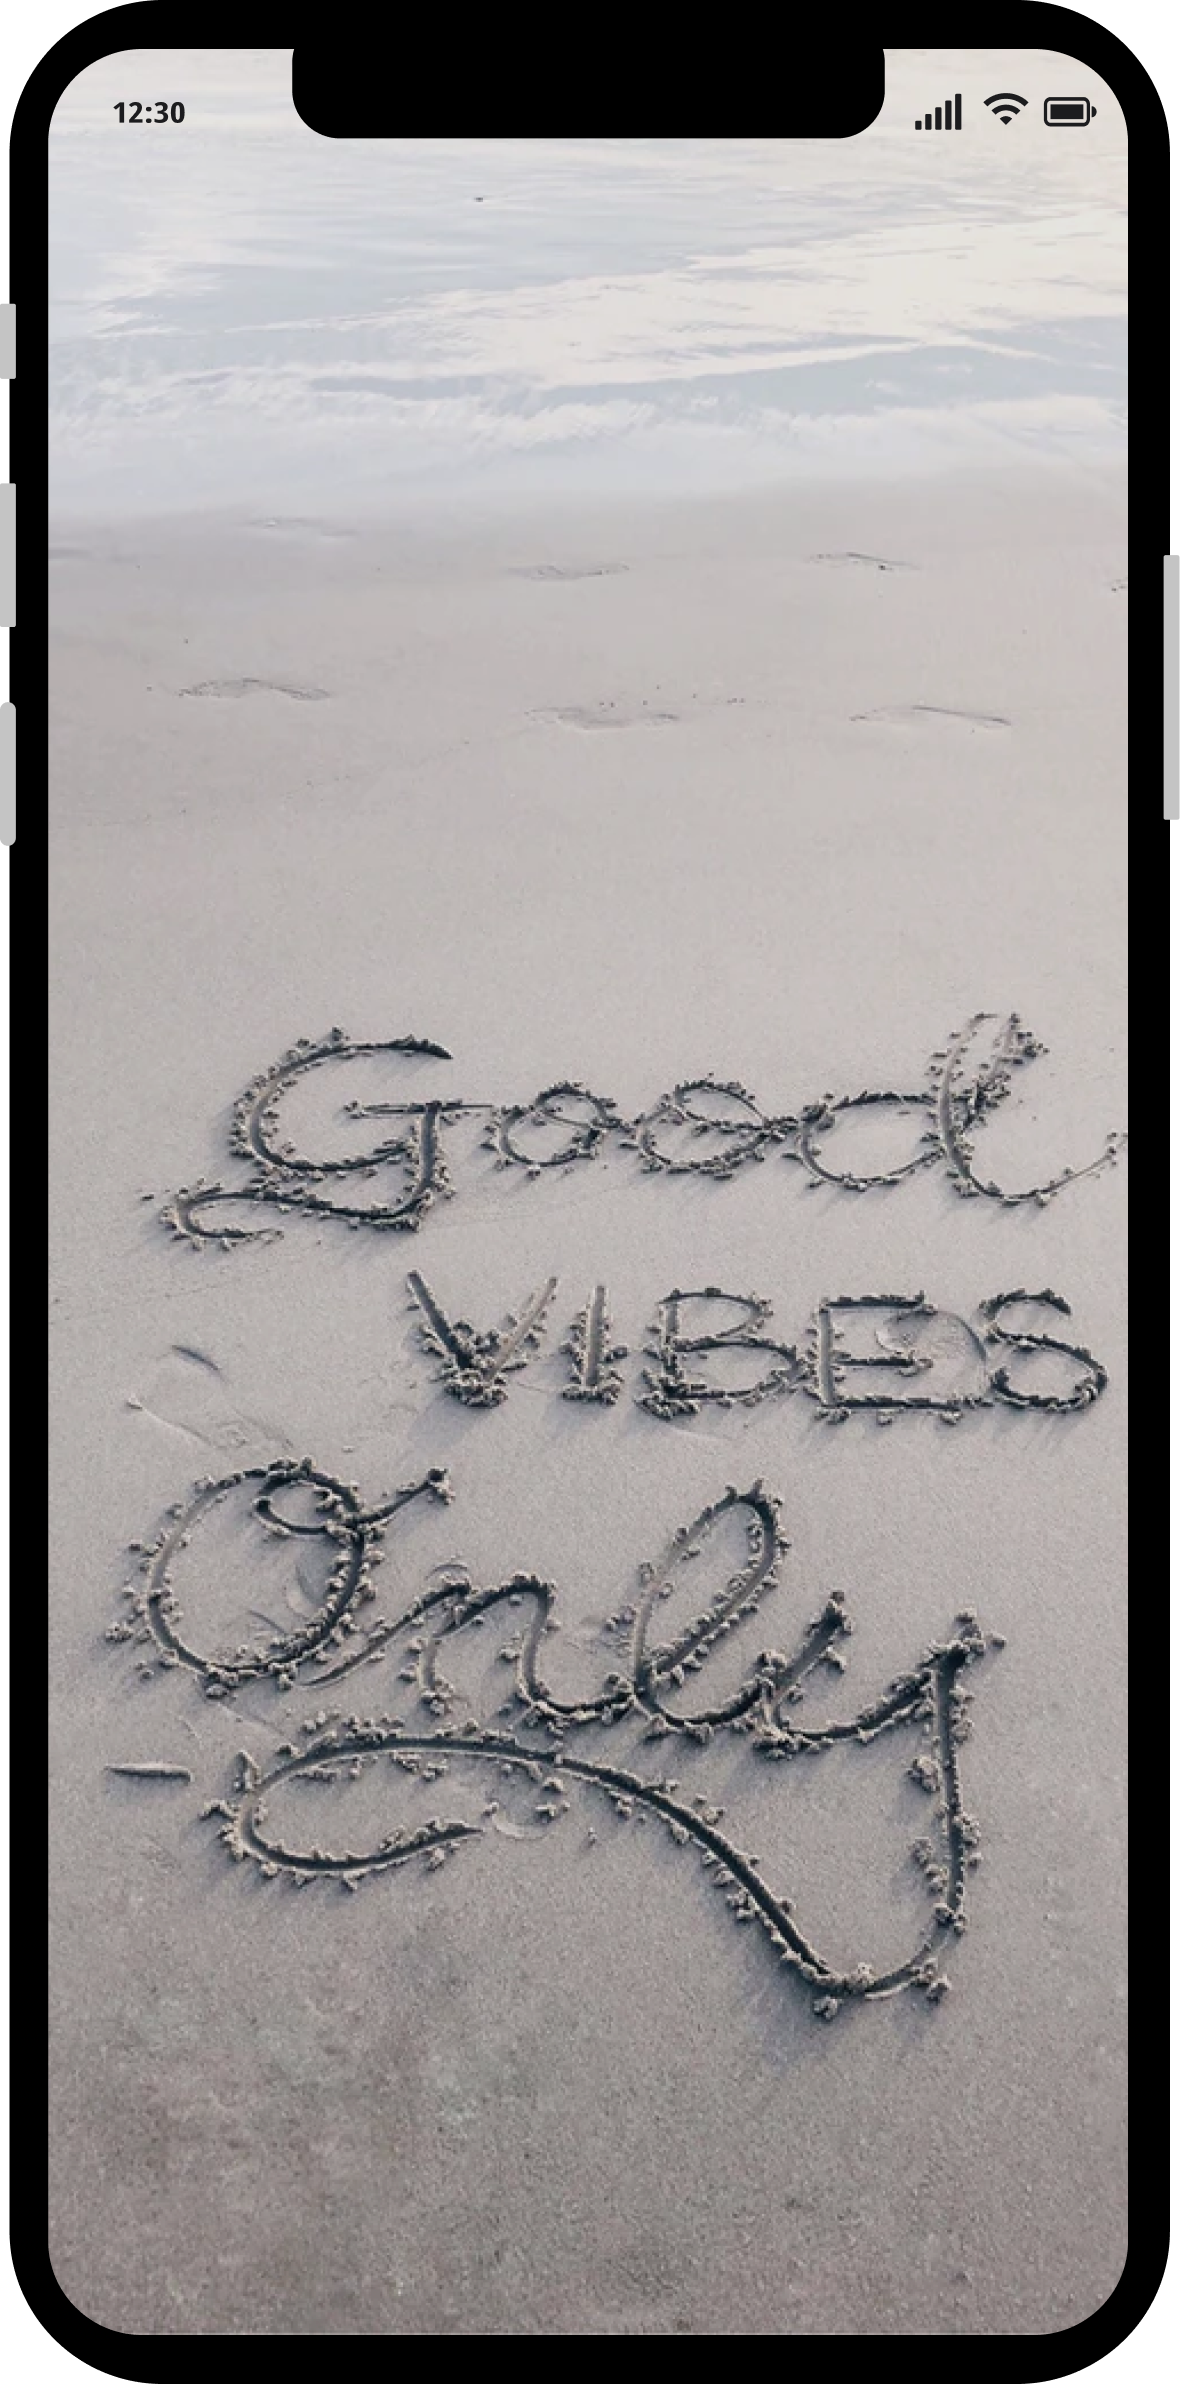 12:30
Good
VIBES
Only